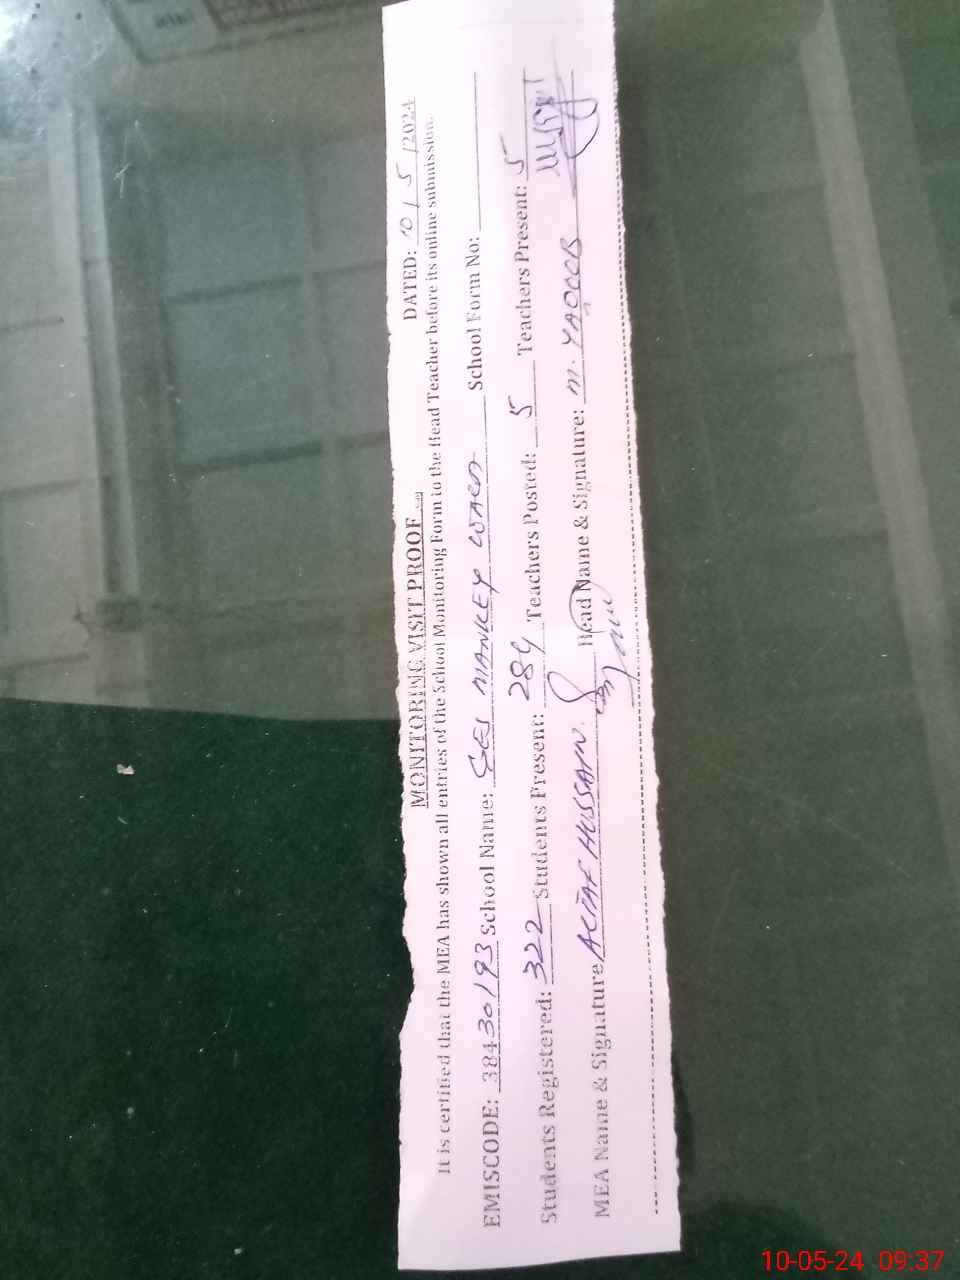 MONITORING VISIT PROOF DATED: 10/5/2024
It is certified that the MEA has shown all entries of the School Monitoring Form to the Head Teacher before its online submission.
EMISCODE: 38430193 School Name: GES MANKEY WALA School Form No:
Students Registered: 322 Students Present: 284 Teachers Posted: 5 Teachers Present: 5
MEA Name & Signature ALTAF HUSSAIN Head Name & Signature: M. YAQOOB
10-05-24 09:37